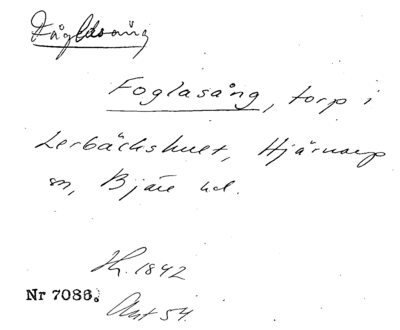 Fåglasång
Foglasång, torp i
Lerbäckshult, Hjärnarp
sn, Bjäre hd.
Jh. 1842
Nr 7086.
Ant 54.